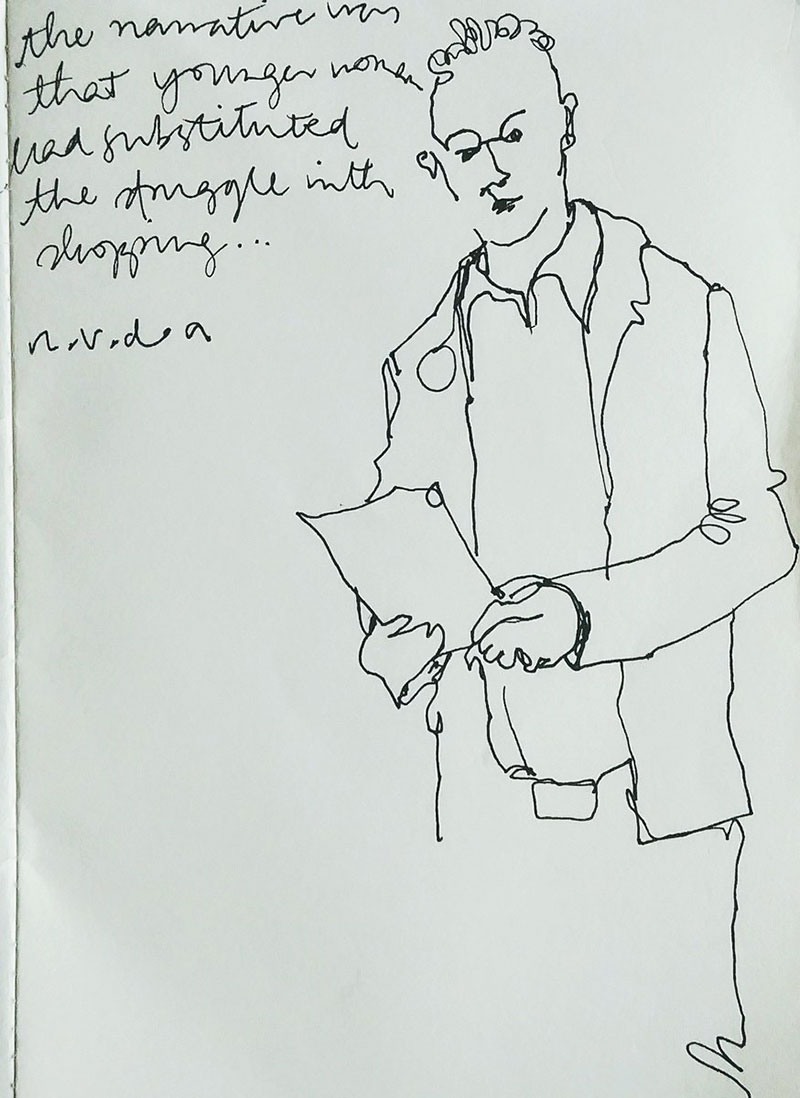 the narrative was
that younger women
had substituted
the struggle with
shopping...
n.v.d.a